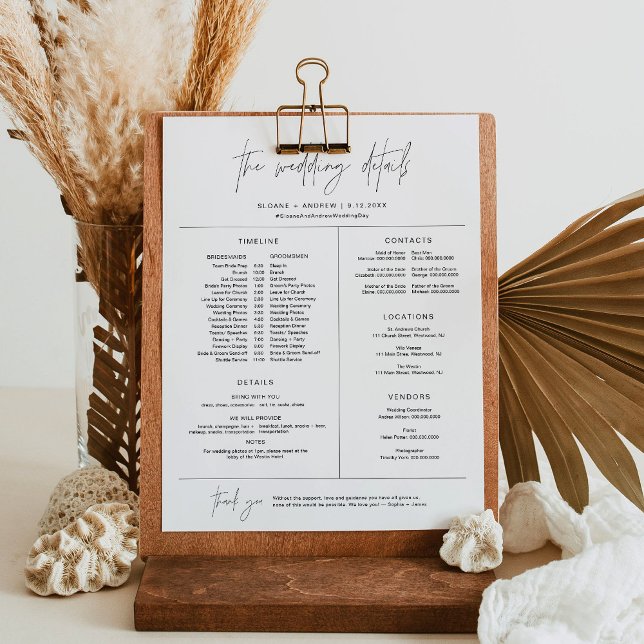 the wedding details
SLOANE + ANDREW | 9.12.20XX
#SloaneAndAndrewWeddingDay
TIMELINE
BRIDESMAIDS GROOMSMEN
Team Bride Prep 9:30 Sleep In
Brunch 10:00 Brunch
Get Dressed 12:00 Get Dressed
Bride's Party Photos 1:00 Groom's Party Photos
Leave for Church 2:00 Leave for Church
Line Up for Ceremony Line Up for Ceremony
Wedding Ceremony Wedding Ceremony
Wedding Photos Wedding Photos
Cocktails & Games Cocktails & Games
Reception Dinner Reception Dinner
Toasts/ Speeches Toasts/ Speeches
Dancing + Party Dancing + Party
Firework Display Firework Display
Bride & Groom Send-off Bride & Groom Send-off
Shuttle Service 11:00 Shuttle Service
DETAILS
BRING WITH YOU
dress, shoes, accessories suit, tie, socks, shoes
WE WILL PROVIDE
brunch, champagne, hair + breakfast, lunch, snacks + beer,
makeup, snacks, transportation transportation
NOTES
For wedding photos at 1pm, please meet at the
lobby of the Westin Hotel
CONTACTS
Maid of Honor Best Man
Marissa: 000.000.0000 Chris: 000.000.0000
Sister of the Bride Brother of the Groom
Elizabeth: 000.000.0000 Douglas: 000.000.0000
Mother of the Bride Father of the Groom
Elaine: 000.000.0000 Michael: 000.000.0000
LOCATIONS
St. Andrews Church
111 Church Street, Westwood, NJ
Villa Veneza
111 Main Street, Westwood, NJ
The Westin
111 Main Street, Westwood, NJ
VENDORS
Wedding Coordinator
Andrea Wilson: 000.000.0000
Florist
Helen Potter: 000.000.0000
Photographer
Timothy York: 000.000.0000
thank you
Without the support, love and guidance you have all given us,
none of this would be possible. We love you! — Sophia + James